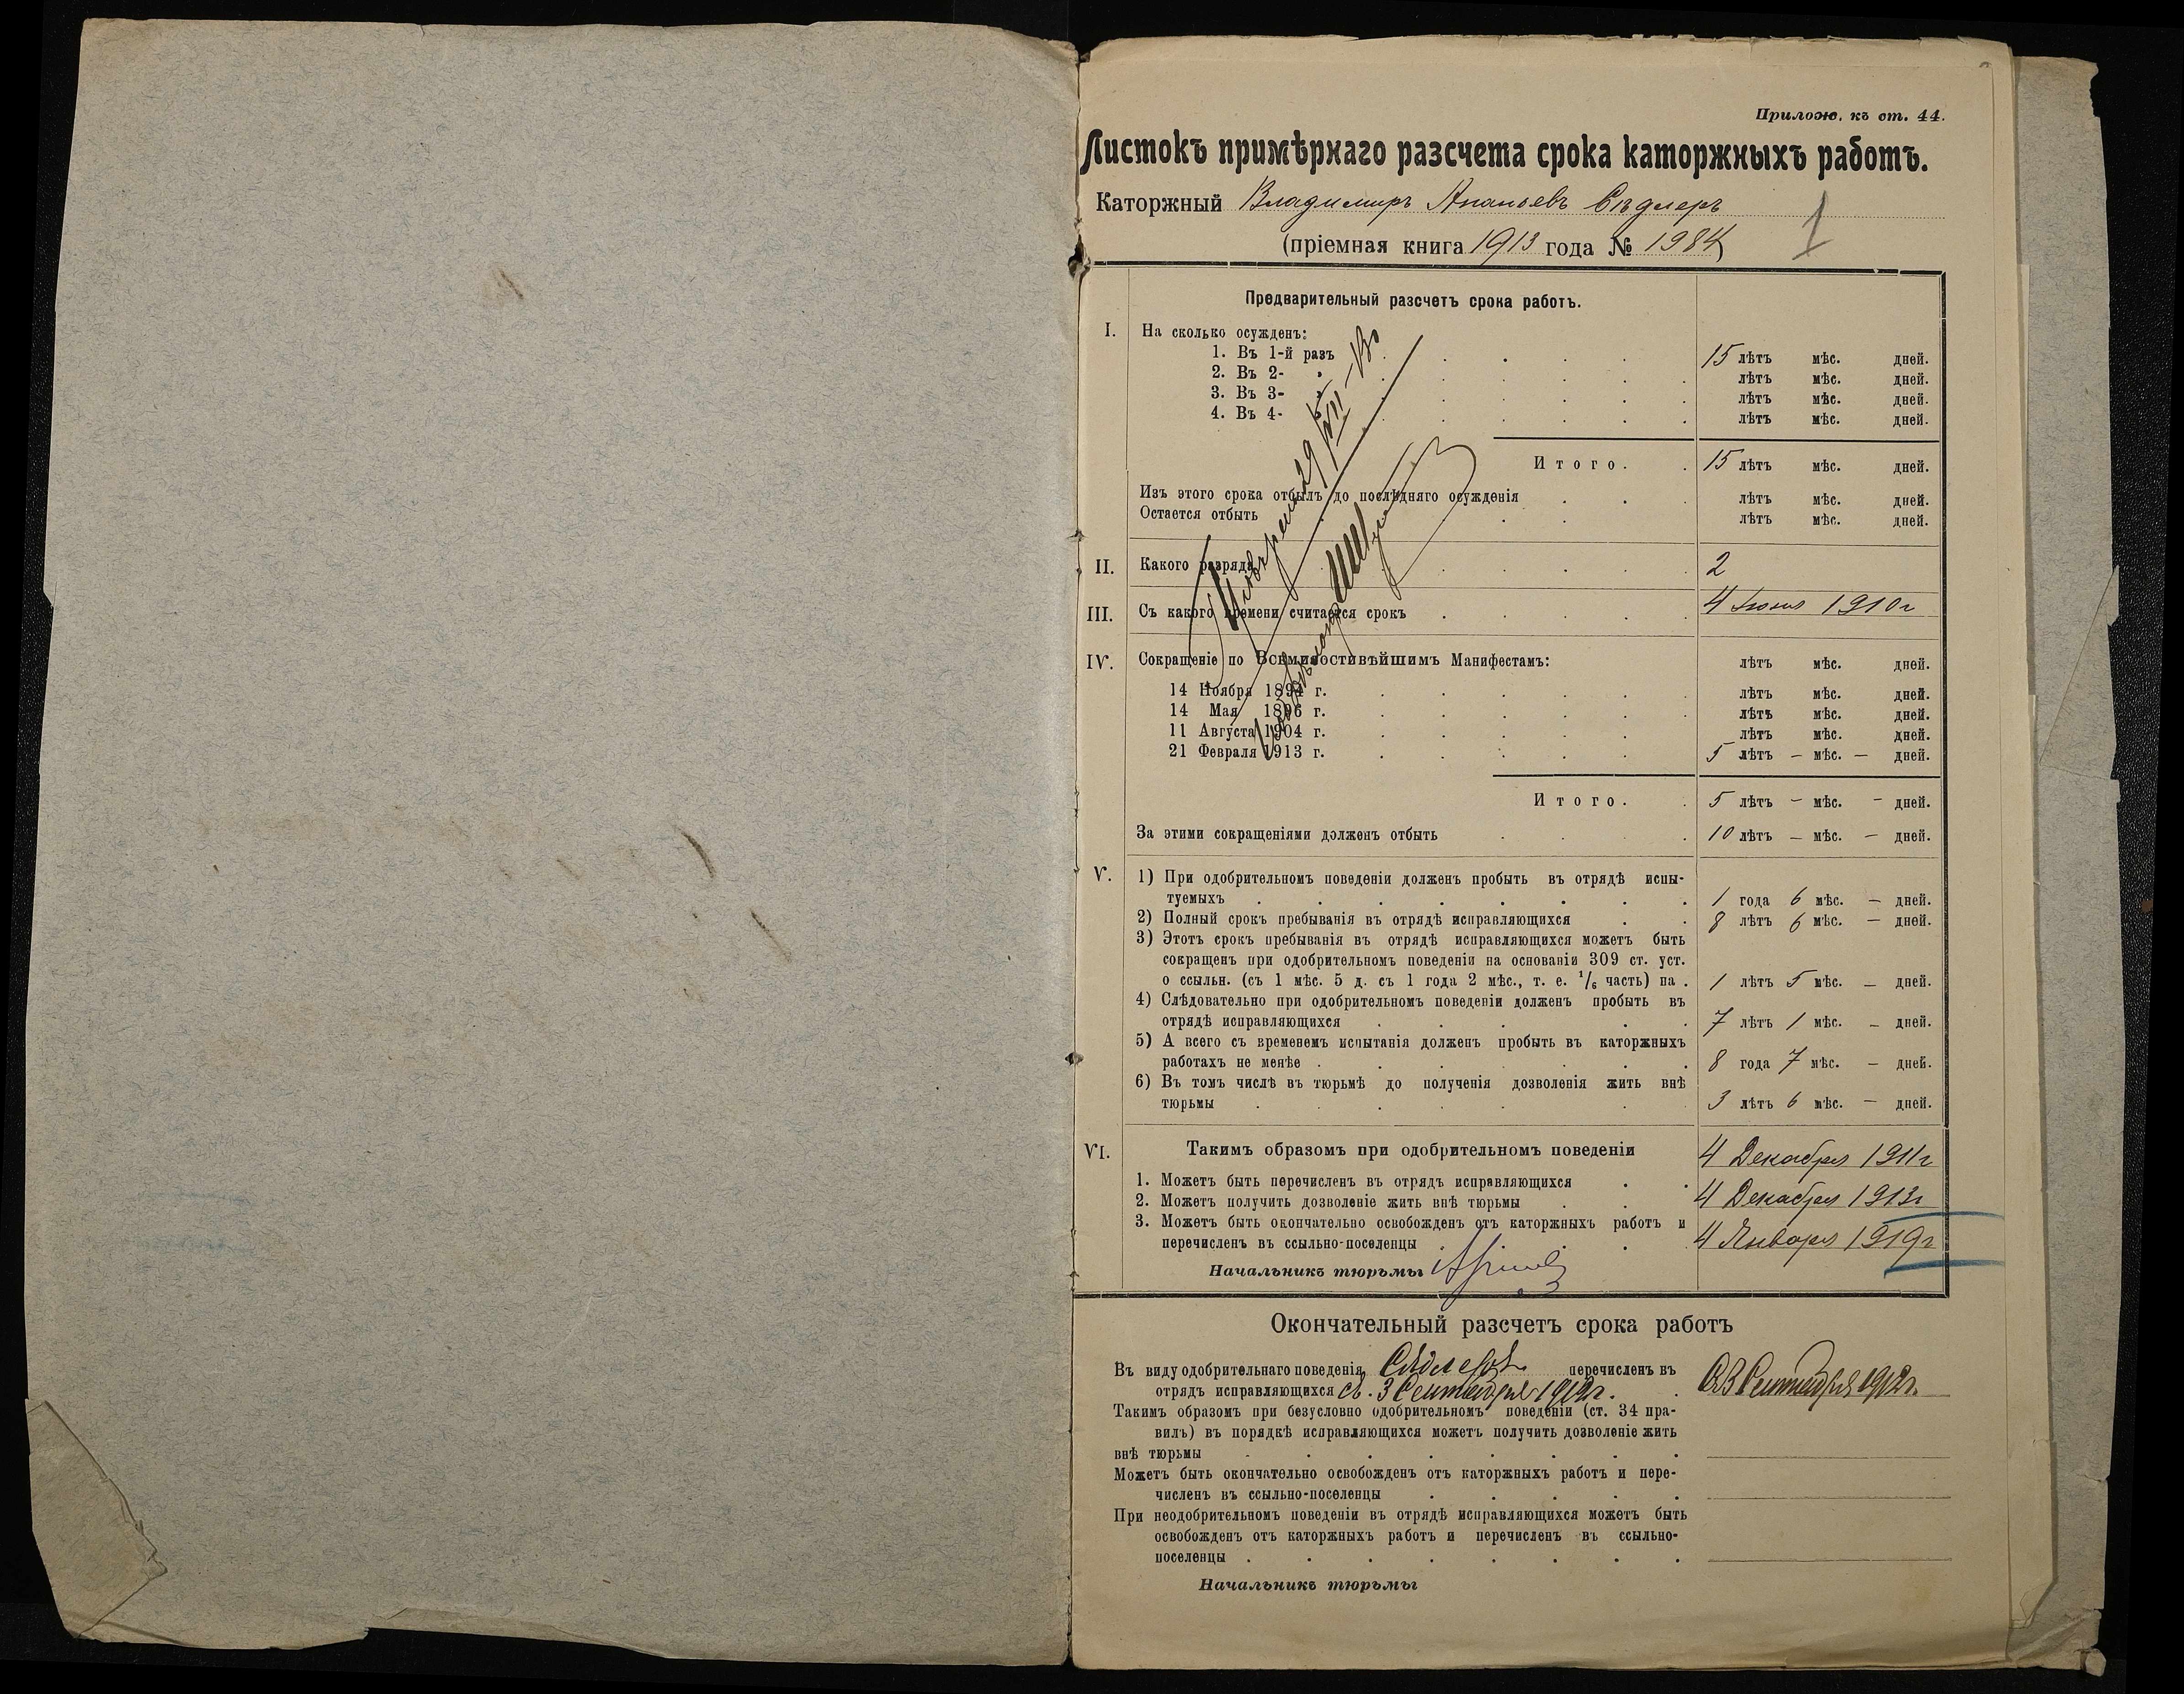 Прилож. къ ст. 44.
Листокъ примѣрнаго разсчета срока каторжныхъ работъ.
Каторжный Владимиръ Ананьевъ Сѣдлеръ
1
(пріемная книга 1913 года № 1984)
Предварительный разсчетъ срока работъ.
I. На сколько осужденъ:
1. Въ 1-й разъ 15 лѣтъ мѣс. дней.
2. Въ 2- " лѣтъ мѣс. дней.
3. Въ 3- " лѣтъ мѣс. дней.
4. Въ 4- " лѣтъ мѣс. дней.
Итого. 15 лѣтъ мѣс. дней.
Изъ этого срока отбылъ до послѣдняго осужденія лѣтъ мѣс. дней.
Остается отбыть лѣтъ мѣс. дней.
II. Какого разряда 2
III. Съ какого времени считается срокъ 4 Іюня 1910 г
IV. Сокращеніе по Всемилостивѣйшимъ Манифестамъ: лѣтъ мѣс. дней.
14 Ноября 1894 г. лѣтъ мѣс. дней.
14 Мая 1896 г. лѣтъ мѣс. дней.
11 Августа 1904 г. лѣтъ мѣс. дней.
21 Февраля 1913 г. 5 лѣтъ – мѣс. – дней.
Итого. 5 лѣтъ – мѣс. – дней.
За этими сокращеніями долженъ отбыть 10 лѣтъ – мѣс. – дней.
V. 1) При одобрительномъ поведеніи долженъ пробыть въ отрядѣ испы-
туемыхъ 1 года 6 мѣс. – дней.
2) Полный срокъ пребыванія въ отрядѣ исправляющихся 8 лѣтъ 6 мѣс. – дней.
3) Этотъ срокъ пребыванія въ отрядѣ исправляющихся можетъ быть
сокращенъ при одобрительномъ поведеніи на основаніи 309 ст. уст.
о ссыльн. (съ 1 мѣс. 5 д. съ 1 года 2 мѣс., т. е. 1/6 часть) на 1 лѣтъ 5 мѣс. – дней.
4) Слѣдовательно при одобрительномъ поведеніи долженъ пробыть въ
отрядѣ исправляющихся 7 лѣтъ 1 мѣс. – дней.
5) А всего съ временемъ испытанія долженъ пробыть въ каторжныхъ
работахъ не менѣе 8 года 7 мѣс. – дней.
6) Въ томъ числѣ въ тюрьмѣ до полученія дозволенія жить внѣ
тюрьмы 3 лѣтъ 6 мѣс. – дней.
VI. Такимъ образомъ при одобрительномъ поведеніи
1. Можетъ быть перечисленъ въ отрядъ исправляющихся 4 Декабря 1911 г
2. Можетъ получить дозволеніе жить внѣ тюрьмы 4 Декабря 1913 г
3. Можетъ быть окончательно освобожденъ отъ каторжныхъ работъ и
перечисленъ въ ссыльно-поселенцы 4 Января 1919 г
Начальникъ тюрьмы
Окончательный разсчетъ срока работъ
Въ виду одобрительнаго поведенія Сѣдлеръ перечисленъ въ
отрядъ исправляющихся съ 3 Сентября 1912 г. Съ 3 Сентября 1912 г.
Такимъ образомъ при безусловно одобрительномъ поведеніи (ст. 34 пра-
вилъ) въ порядкѣ исправляющихся можетъ получить дозволеніе жить
внѣ тюрьмы
Можетъ быть окончательно освобожденъ отъ каторжныхъ работъ и пере-
численъ въ ссыльно-поселенцы
При неодобрительномъ поведеніи въ отрядѣ исправляющихся можетъ быть
освобожденъ отъ каторжныхъ работъ и перечисленъ въ ссыльно-
поселенцы
Начальникъ тюрьмы